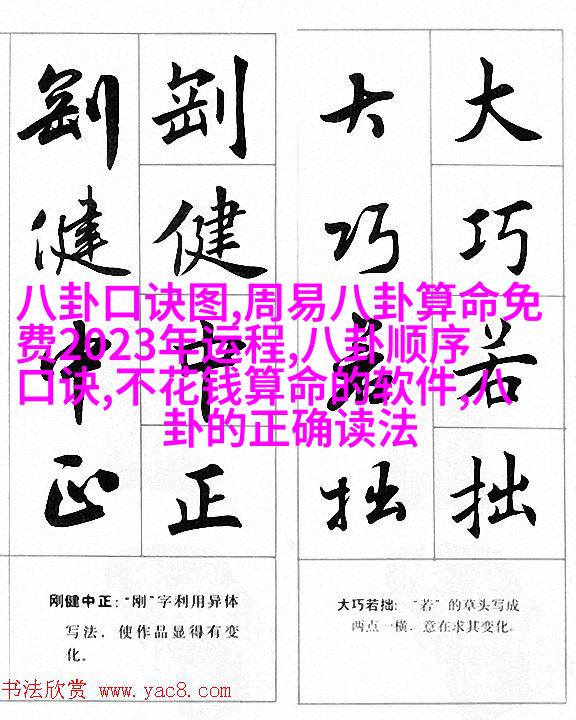 剛 剛 大 大
健 健 巧 巧
中 中 若 若
正 正 拙 拙
八卦口诀图,周易八卦算命免
费2023年运程,八卦顺序
口诀,不花钱算命的软件,八
卦的正确读法
刚健中正：“刚”字利用异体
写法，使作品显得有变
化。
大巧若拙：“若”的草头写成
两点一横，意在求其变化。
书法欣赏 www.yac8.com